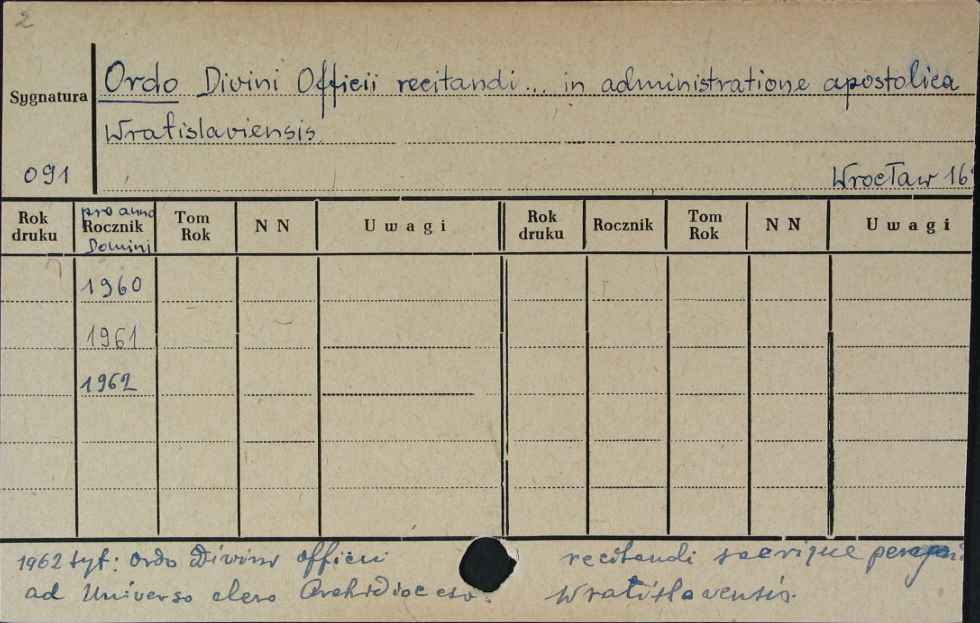 2
Sygnatura
Ordo Divini Officii recitandi... in administratione apostolica
Wratislaviensis
091
Wrocław 16
Rok druku
pro anno Rocznik Domini
Tom Rok
N N
Uwagi
Rok druku
Rocznik
Tom Rok
N N
Uwagi
1960
1961
1962
1962 tyt: Ordo Divini officii recitandi sacrique
ad Universo clero Archidioces. Wratislavensis.